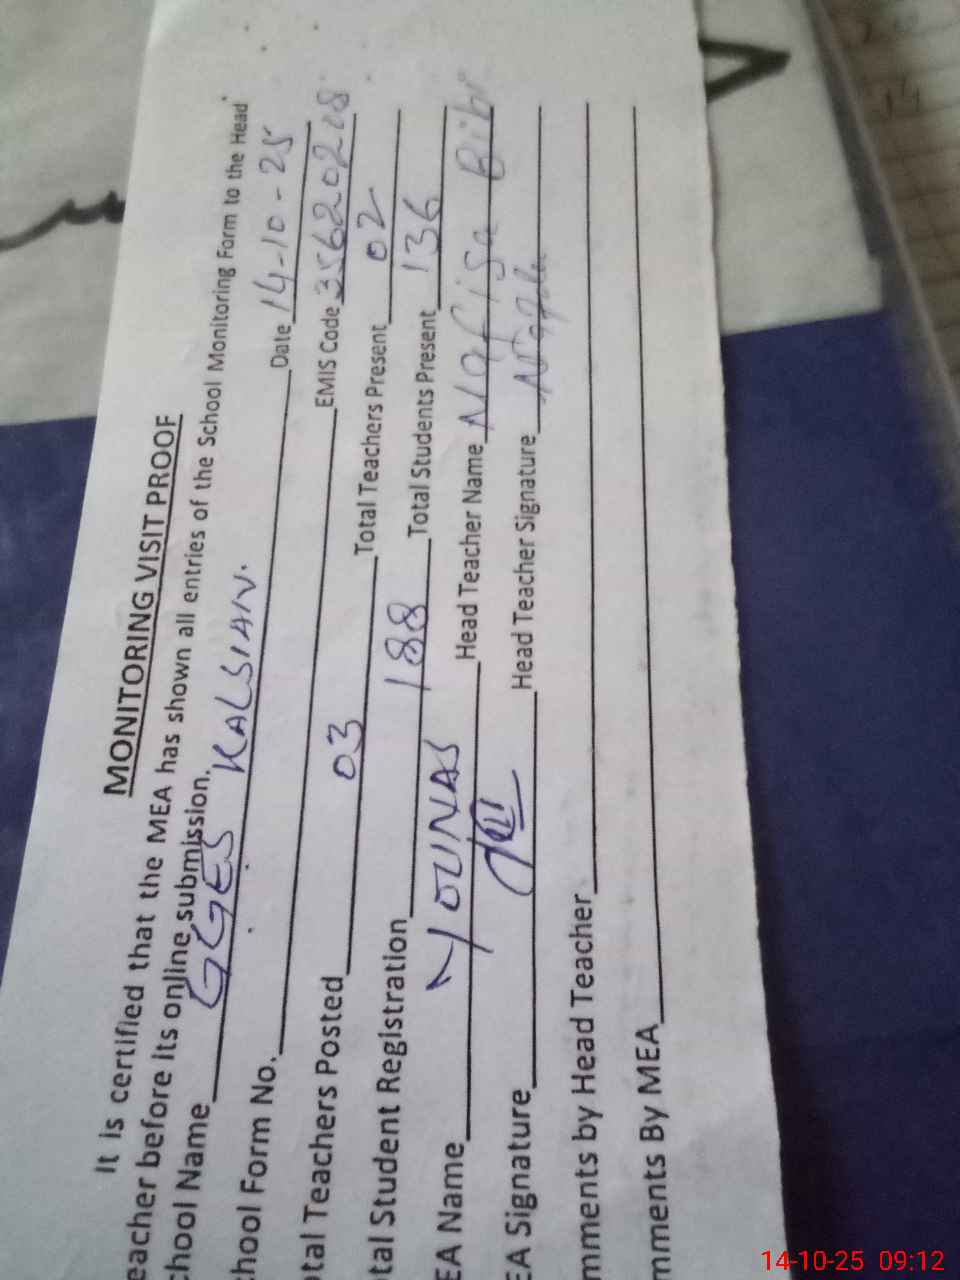 MONITORING VISIT PROOF
It is certified that the MEA has shown all entries of the School Monitoring Form to the Head
eacher before its online submission.
chool Name GGES KALSIAN. Date 14-10-25
chool Form No. EMIS Code 35620208
tal Teachers Posted 03 Total Teachers Present 02
tal Student Registration 188 Total Students Present 136
EA Name YOUNAS Head Teacher Name Nafisa Bibi
EA Signature Head Teacher Signature
mments by Head Teacher
mments By MEA
14-10-25 09:12